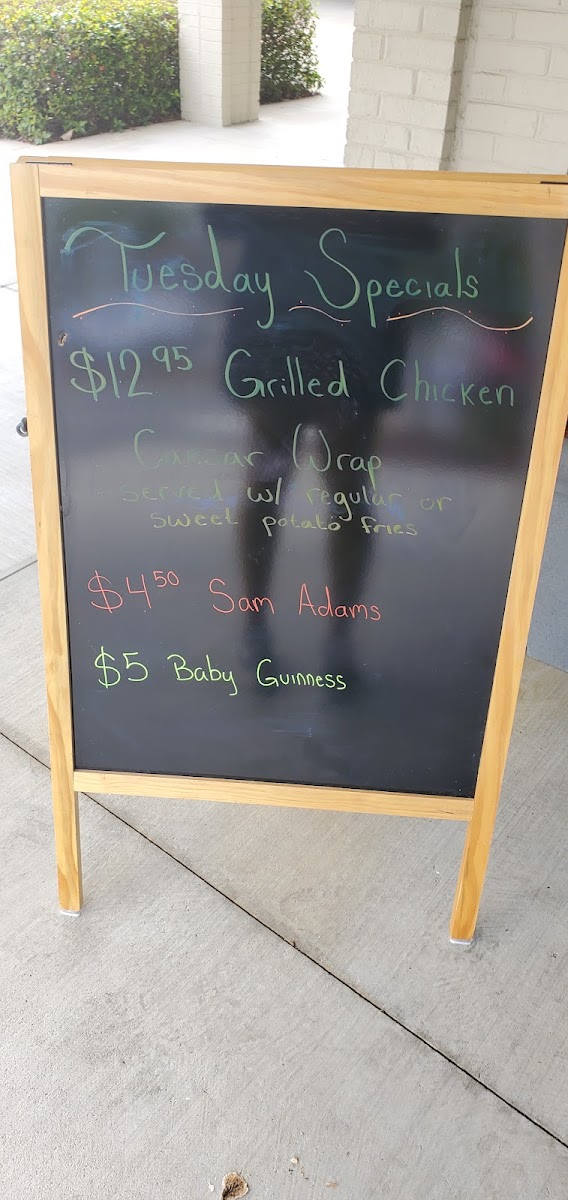 Tuesday Specials
$12.95 Grilled Chicken
Caesar Wrap
served w/ regular or
sweet potato fries
$4.50 Sam Adams
$5 Baby Guinness